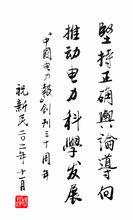 堅持正确輿論導向
推动电力科學发展
《中国电力報》创刊三十周年
祝新民 二〇一二年十一月